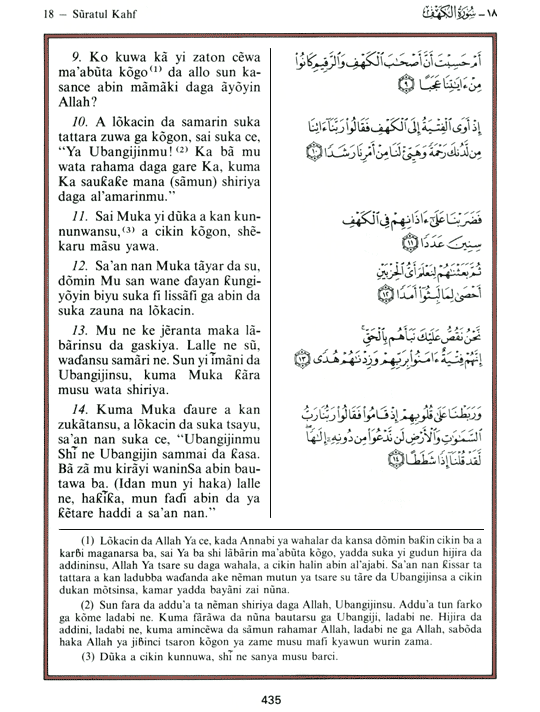 18 — Sūratul Kahf
١٨ — سُورَةُ الكَهْفِ
9. Ko kuwa kã yi zaton cẽwa
ma'abũta kõgo⁽¹⁾ da allo sun ka-
sance abin mãmãki daga ãyõyin
Allah?
10. A lõkacin da samarin suka
tattara zuwa ga kõgon, sai suka ce,
"Ya Ubangijinmu!⁽²⁾ Ka bã mu
wata rahama daga gare Ka, kuma
Ka sauƙaƙe mana (sãmun) shiriya
daga al'amarinmu."
11. Sai Muka yi dũka a kan kun-
nunwansu,⁽³⁾ a cikin kõgon, shẽ-
karu mãsu yawa.
12. Sa'an nan Muka tãyar da su,
dõmin Mu san wane ɗayan ƙungi-
yõyin biyu suka fi lissãfi ga abin da
suka zauna na lõkacin.
13. Mu ne ke jẽranta maka lã-
bãrinsu da gaskiya. Lalle ne sũ,
waɗansu samãri ne. Sun yi ĩmãni da
Ubangijinsu, kuma Muka ƙãra
musu wata shiriya.
14. Kuma Muka ɗaure a kan
zukãtansu, a lõkacin da suka tsayu,
sa'an nan suka ce, "Ubangijinmu
Shĩ ne Ubangijin sammai da ƙasa.
Bã zã mu kirãyi waninSa abin bau-
tawa ba. (Idan mun yi haka) lalle
ne, haƙĩƙa, mun faɗi abin da ya
ƙẽtare haddi a sa'an nan."
أَمْ حَسِبْتَ أَنَّ أَصْحَٰبَ ٱلْكَهْفِ وَٱلرَّقِيمِ كَانُوا۟
مِنْ ءَايَٰتِنَا عَجَبًا ٩
إِذْ أَوَى ٱلْفِتْيَةُ إِلَى ٱلْكَهْفِ فَقَالُوا۟ رَبَّنَآ ءَاتِنَا
مِن لَّدُنكَ رَحْمَةً وَهَيِّئْ لَنَا مِنْ أَمْرِنَا رَشَدًا ١٠
فَضَرَبْنَا عَلَىٰٓ ءَاذَانِهِمْ فِى ٱلْكَهْفِ
سِنِينَ عَدَدًا ١١
ثُمَّ بَعَثْنَٰهُمْ لِنَعْلَمَ أَىُّ ٱلْحِزْبَيْنِ
أَحْصَىٰ لِمَا لَبِثُوٓا۟ أَمَدًا ١٢
نَّحْنُ نَقُصُّ عَلَيْكَ نَبَأَهُم بِٱلْحَقِّ ۚ
إِنَّهُمْ فِتْيَةٌ ءَامَنُوا۟ بِرَبِّهِمْ وَزِدْنَٰهُمْ هُدًى ١٣
وَرَبَطْنَا عَلَىٰ قُلُوبِهِمْ إِذْ قَامُوا۟ فَقَالُوا۟ رَبُّنَا رَبُّ
ٱلسَّمَٰوَٰتِ وَٱلْأَرْضِ لَن نَّدْعُوَا۟ مِن دُونِهِۦٓ إِلَٰهًا ۖ
لَّقَدْ قُلْنَآ إِذًا شَطَطًا ١٤
(1) Lõkacin da Allah Ya ce, kada Annabi ya wahalar da kansa dõmin baƙin cikin ba a
karɓi maganarsa ba, sai Ya ba shi lãbãrin ma'abũta kõgo, yadda suka yi gudun hijira da
addininsu, Allah Ya tsare su daga wahala, a cikin halin abin al'ajabi. Sa'an nan ƙissar ta
tattara a kan ladubba waɗanda ake nẽman mutun ya tsare su tãre da Ubangijinsa a cikin
dukan mõtsinsa, kamar yadda bayãni zai nũna.
(2) Sun fara da addu'a ta nẽman shiriya daga Allah, Ubangijinsu. Addu'a tun farko
ga kõme ladabi ne. Kuma fãrãwa da nũna bautarsu ga Ubangiji, ladabi ne. Hijira da
addini, ladabi ne, kuma amincẽwa da sãmun rahamar Allah, ladabi ne ga Allah, sabõda
haka Allah ya jiɓinci tsaron kõgon ya zame musu mafi kyawun wurin zama.
(3) Dũka a cikin kunnuwa, shĩ ne sanya musu barci.
435